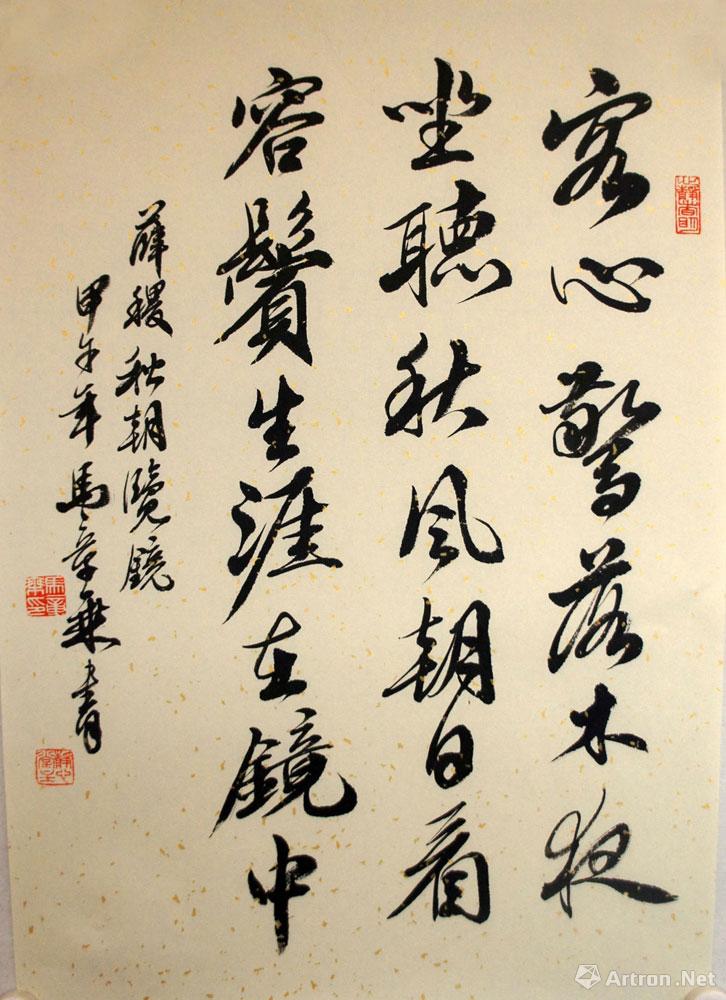 客心驚落木夜
坐聽秋風朝日看
容鬢生涯在鏡中
薛稷秋朝覽鏡
甲午年馬章乗書
Artron.Net